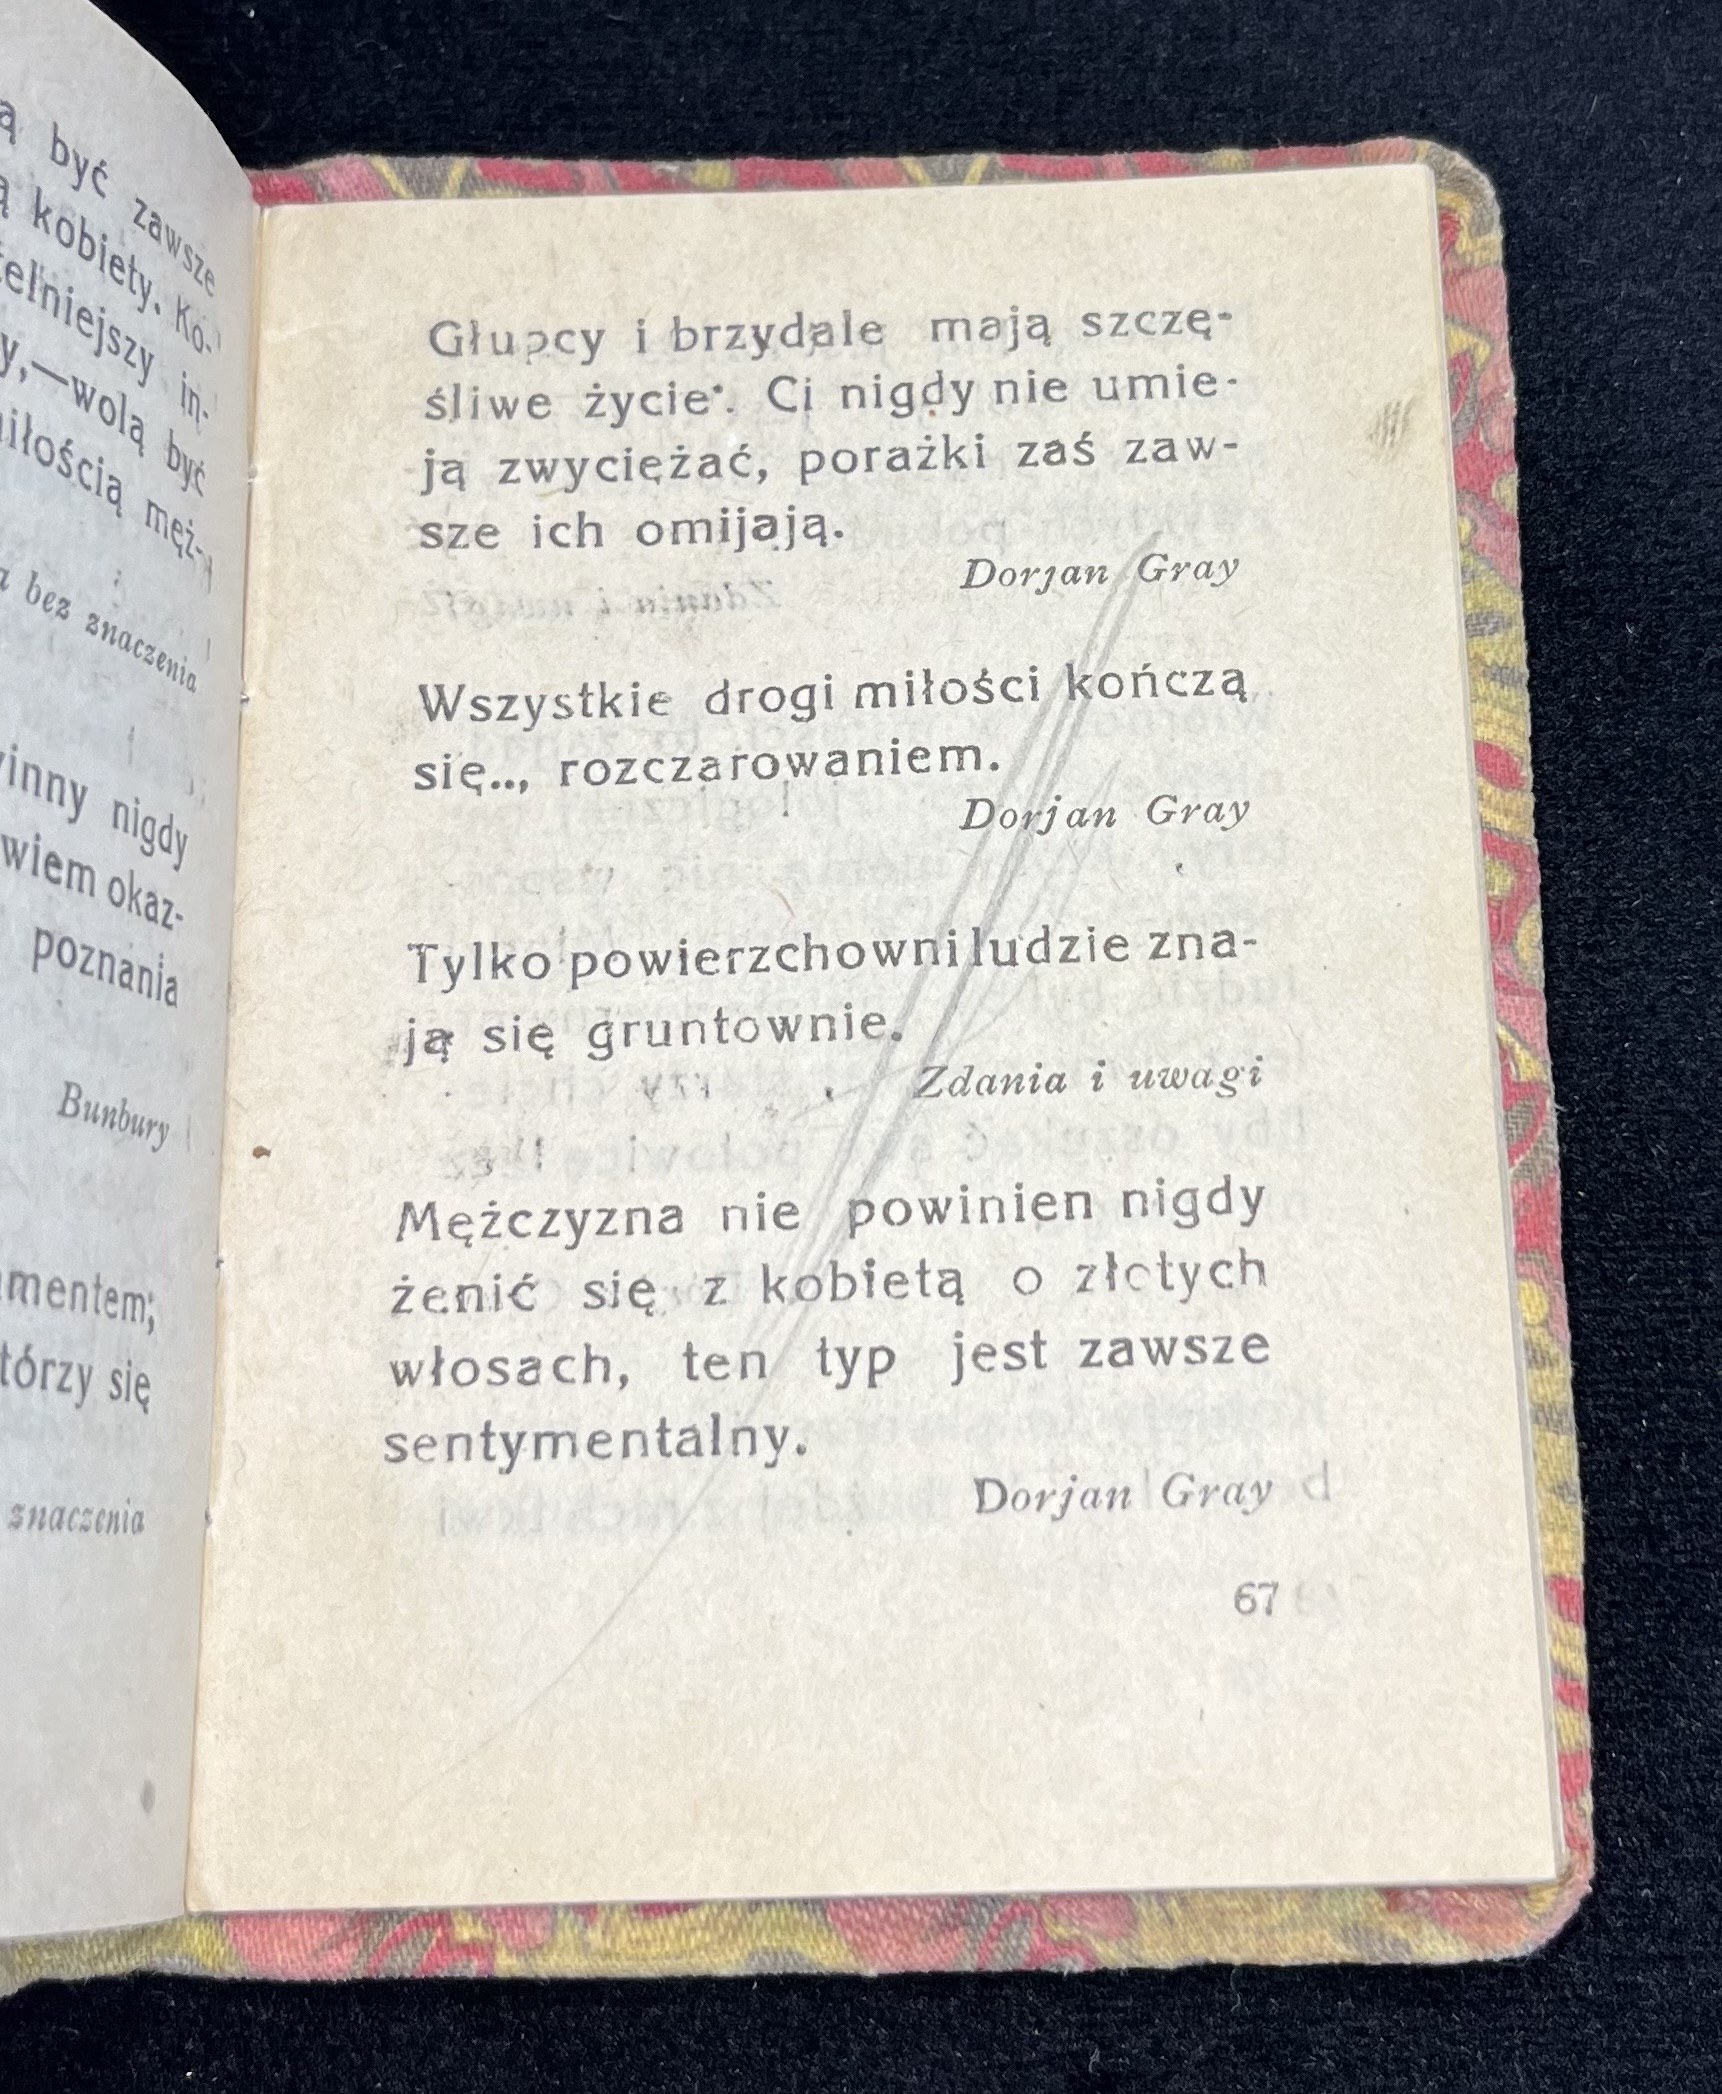 ą być zawsze
ą kobiety. Ko-
telniejszy in-
y,—wolą być
miłością męż-
bez znaczenia
winny nigdy
wiem okaz-
poznania
Bunbury
mentem;
tórzy się
znaczenia
Głupcy i brzydale mają szczę-
śliwe życie. Ci nigdy nie umie-
ją zwyciężać, porażki zaś zaw-
sze ich omijają.
Dorjan Gray
Wszystkie drogi miłości kończą
się.., rozczarowaniem.
Dorjan Gray
Tylko powierzchowni ludzie zna-
ją się gruntownie.
Zdania i uwagi
Mężczyzna nie powinien nigdy
żenić się z kobietą o złotych
włosach, ten typ jest zawsze
sentymentalny.
Dorjan Gray
67